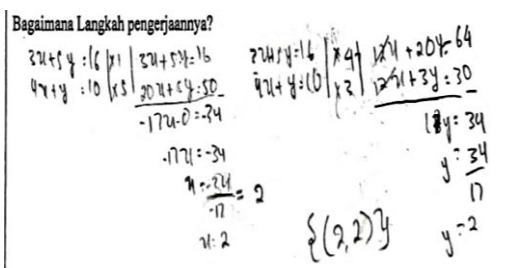 Bagaimana Langkah pengerjaannya?
3x+5y=16 |x1| 3x+5y=16
4x+y=10 |x5| 20x+5y=50 -
-17x-0=-34
-17x=-34
x=-34/-17=2
x=2
3x+5y=16 |x4| 12x+20y=64
4x+y=10 |x3| 12x+3y=30 -
y=34
y=34/17
y=2
{(2,2)}